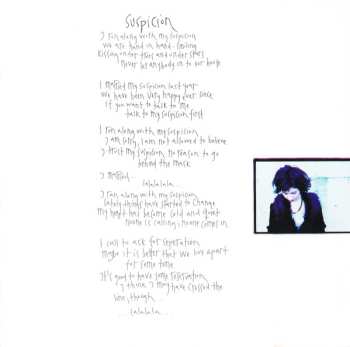 Suspicion
I run along with my suspicion
We are hand in hand - loving
Kissing under trees and under stars
Never let anybody in to our house
I married my suspicion last year
We have been very happy ever since
If you want to talk to me
talk to my suspicion first
I run along with my suspicion
I am sorry, I am not allowed to believe
I trust my suspicion, no reason to go
behind the mask
I married...
lalalala...
I run along with my suspicion
lately things have started to change
My heart has become cold and quiet
No one is calling, no one comes in
I call to ask for separation
Maybe it is better that we live apart
for some time
It's good to have some reservation
I think I may have crossed the
line, though...
...lalalala...